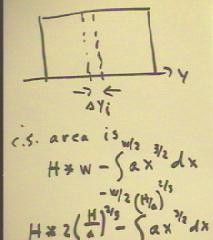 → y
Δy_i
c.s. area is
H * w - ∫_{-w/2}^{w/2} ax^{3/2} dx
H * 2(H/a)^{2/3} - ∫^{(H/a)^{2/3}} ax^{3/2} dx